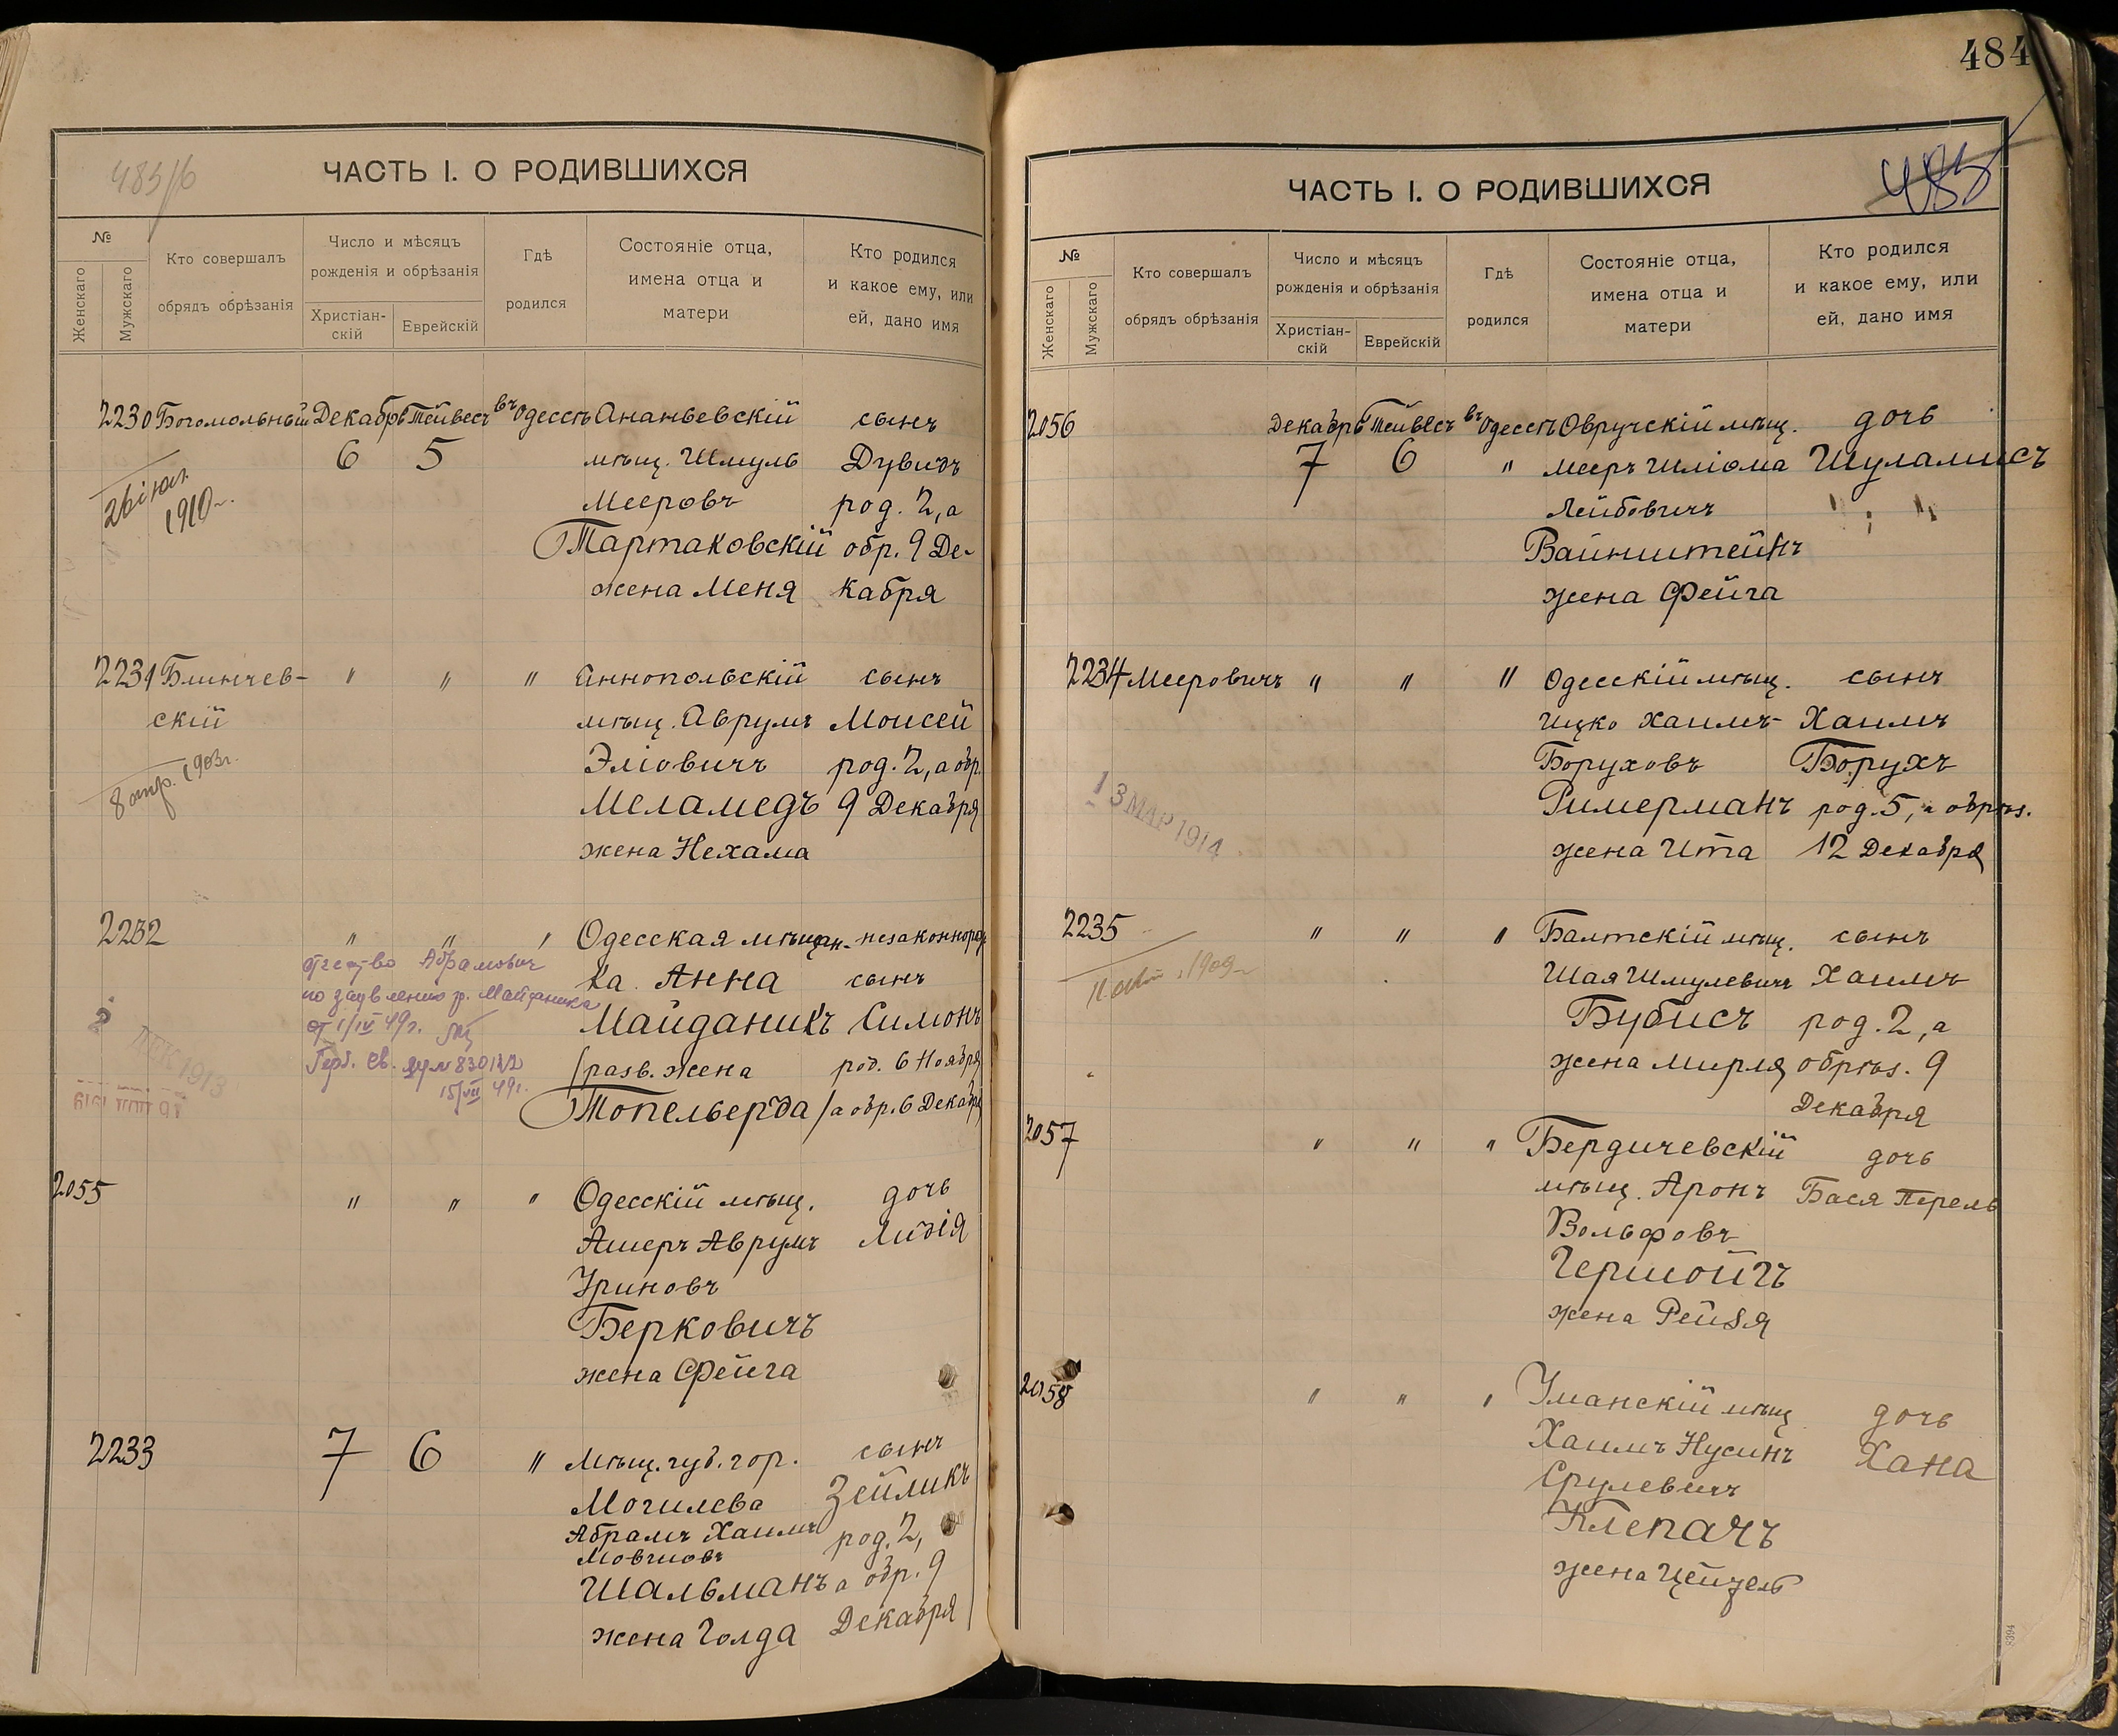 ЧАСТЬ I. О РОДИВШИХСЯ
№
Женскаго
Мужскаго
Кто совершалъ
обрядъ обрѣзанія
Число и мѣсяцъ
рожденія и обрѣзанія
Христіан-
скій
Еврейскій
Гдѣ
родился
Состояніе отца,
имена отца и
матери
Кто родился
и какое ему, или
ей, дано имя
2230 Богомольный Декабрь Тейвесъ въ Одессѣ Ананьевскій сынъ
6 5 мѣщ. Шмуль Дувидъ
Мееровъ род. 2, а
Тартаковскій обр. 9 Де-
жена Меня кабря
1910г.
2231 Блинчев- " " " Аннопольскій сынъ
скій мѣщ. Аврумъ Моисей
Эліовичъ род. 2, а обр.
Меламедъ 9 Декабря
жена Нехама
8 апр. 1903г.
2232 " " " Одесская мѣщан- незаконнорож
ка Анна сынъ
Майданикъ Симонъ
(разв. жена род. 6 Ноября
Топельберда) а обр. 6 Декабр
отчество Абрамович
по заявлению гр. Майданика
от 1/IV 49г.
15/VII 49г.
1913
2055 " " " Одесскій мѣщ. дочь
Ашеръ Аврумъ Лидія
Уриновъ
Берковичъ
жена Фейга
2233 7 6 " мѣщ. губ. гор. сынъ
Могилева Зейликъ
Абрамъ Хаимъ род. 2,
Мовшовъ
Шальманъ а обр. 9
жена Голда Декабря
484
485
ЧАСТЬ I. О РОДИВШИХСЯ
№
Женскаго
Мужскаго
Кто совершалъ
обрядъ обрѣзанія
Число и мѣсяцъ
рожденія и обрѣзанія
Христіан-
скій
Еврейскій
Гдѣ
родился
Состояніе отца,
имена отца и
матери
Кто родился
и какое ему, или
ей, дано имя
2056 Декабрь Тейвесъ въ Одессѣ Овручскій мѣщ. дочь
7 6 " Мееръ Шліома Шуламисъ
Лейбовичъ
Вайнштейнъ
жена Фейга
2234 Мееровичъ " " " Одесскій мѣщ. сынъ
Ицко Хаимъ- Хаимъ
Боруховъ Борухъ
Римерманъ род. 5, а обрѣз.
жена Ита 12 Декабря
13 МАР 1914
2235 " " " Балтскій мѣщ. сынъ
Шая Шмулевичъ Хаимъ
Бубисъ род. 2, а
жена Мирля обрѣз. 9
Декабря
1909г
2057 " " " Бердичевскій дочь
мѣщ. Аронъ Бася Перель
Вольфовъ
Гершойгъ
жена Рейзя
2058 " " " Уманскій мѣщ дочь
Хаимъ Нусинъ Хана
Срулевичъ
Клепачъ
жена Цейзель
8394